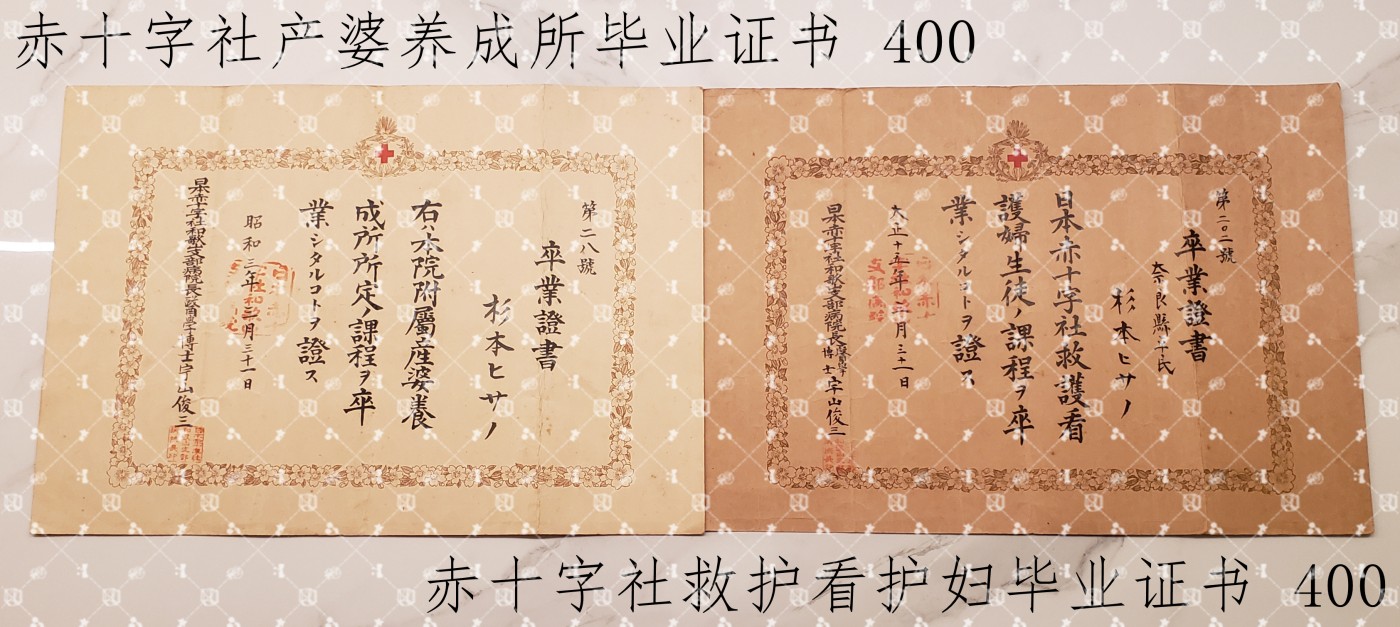 赤十字社产婆养成所毕业证书 400
第二八號
卒業證書
杉本ヒサノ
右ハ本院附屬産婆養
成所所定ノ課程ヲ卒
業シタルコトヲ證ス
昭和三年三月三十一日
日本赤十字社和歌山支部病院長醫學博士宇山俊三
第二〇一號
卒業證書
奈良縣平民
杉本ヒサノ
日本赤十字社救護看
護婦生徒ノ課程ヲ卒
業シタルコトヲ證ス
大正十五年三月三十一日
日本赤十字社和歌山支部病院長醫學博士宇山俊三
赤十字社救护看护妇毕业证书 400